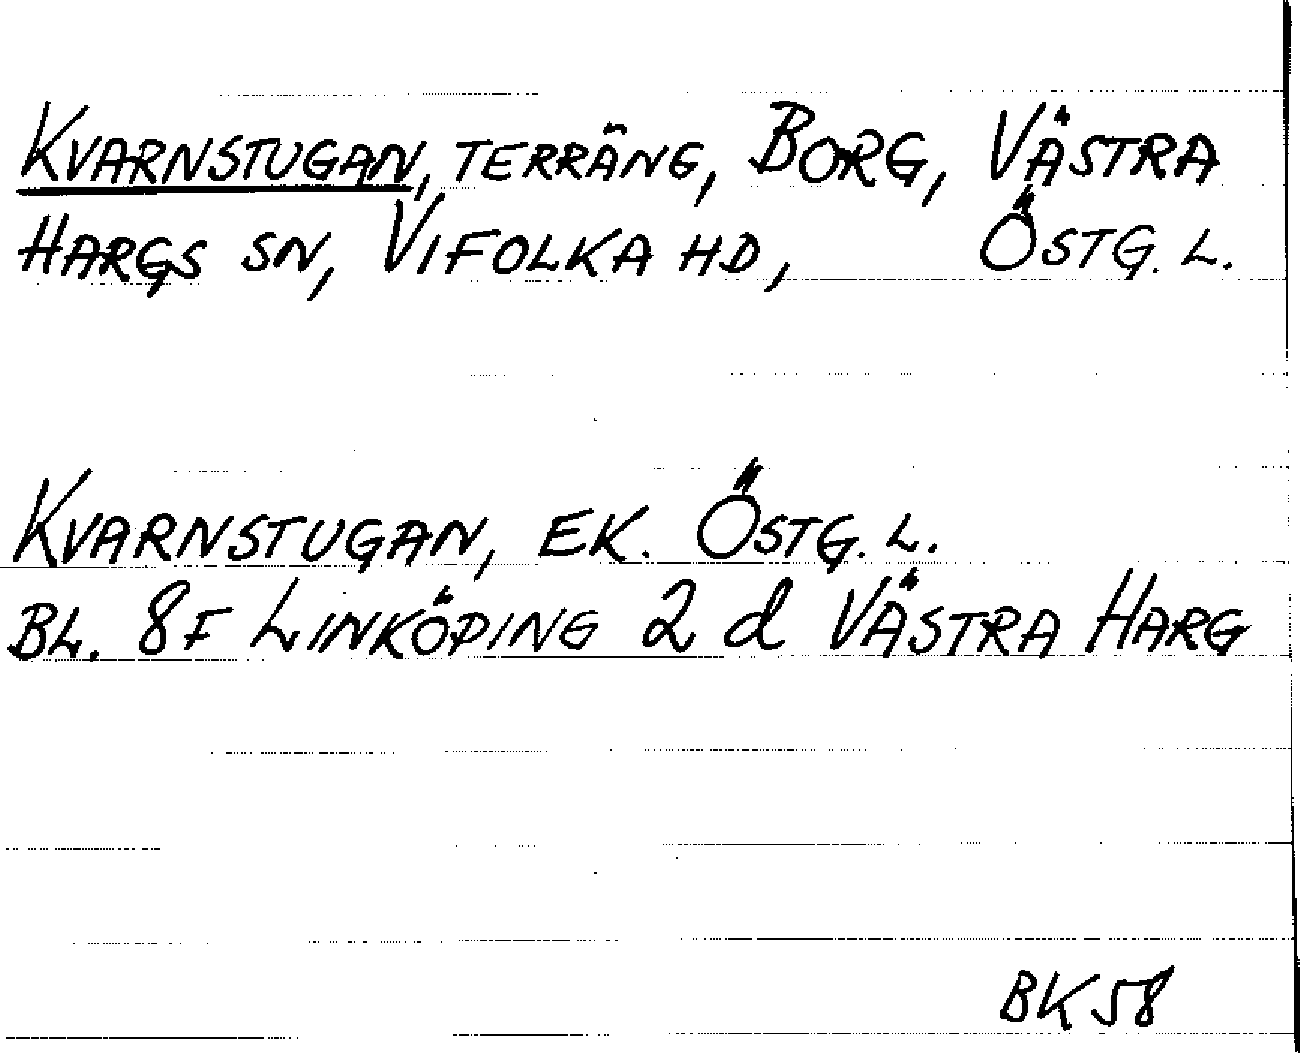 KVARNSTUGAN, TERRÄNG, BORG, VÄSTRA
HARGS SN, VIFOLKA HD, ÖSTG. L.
KVARNSTUGAN, EK. ÖSTG. L.
BL. 8F LINKÖPING 2 d VÄSTRA HARG
BK 58